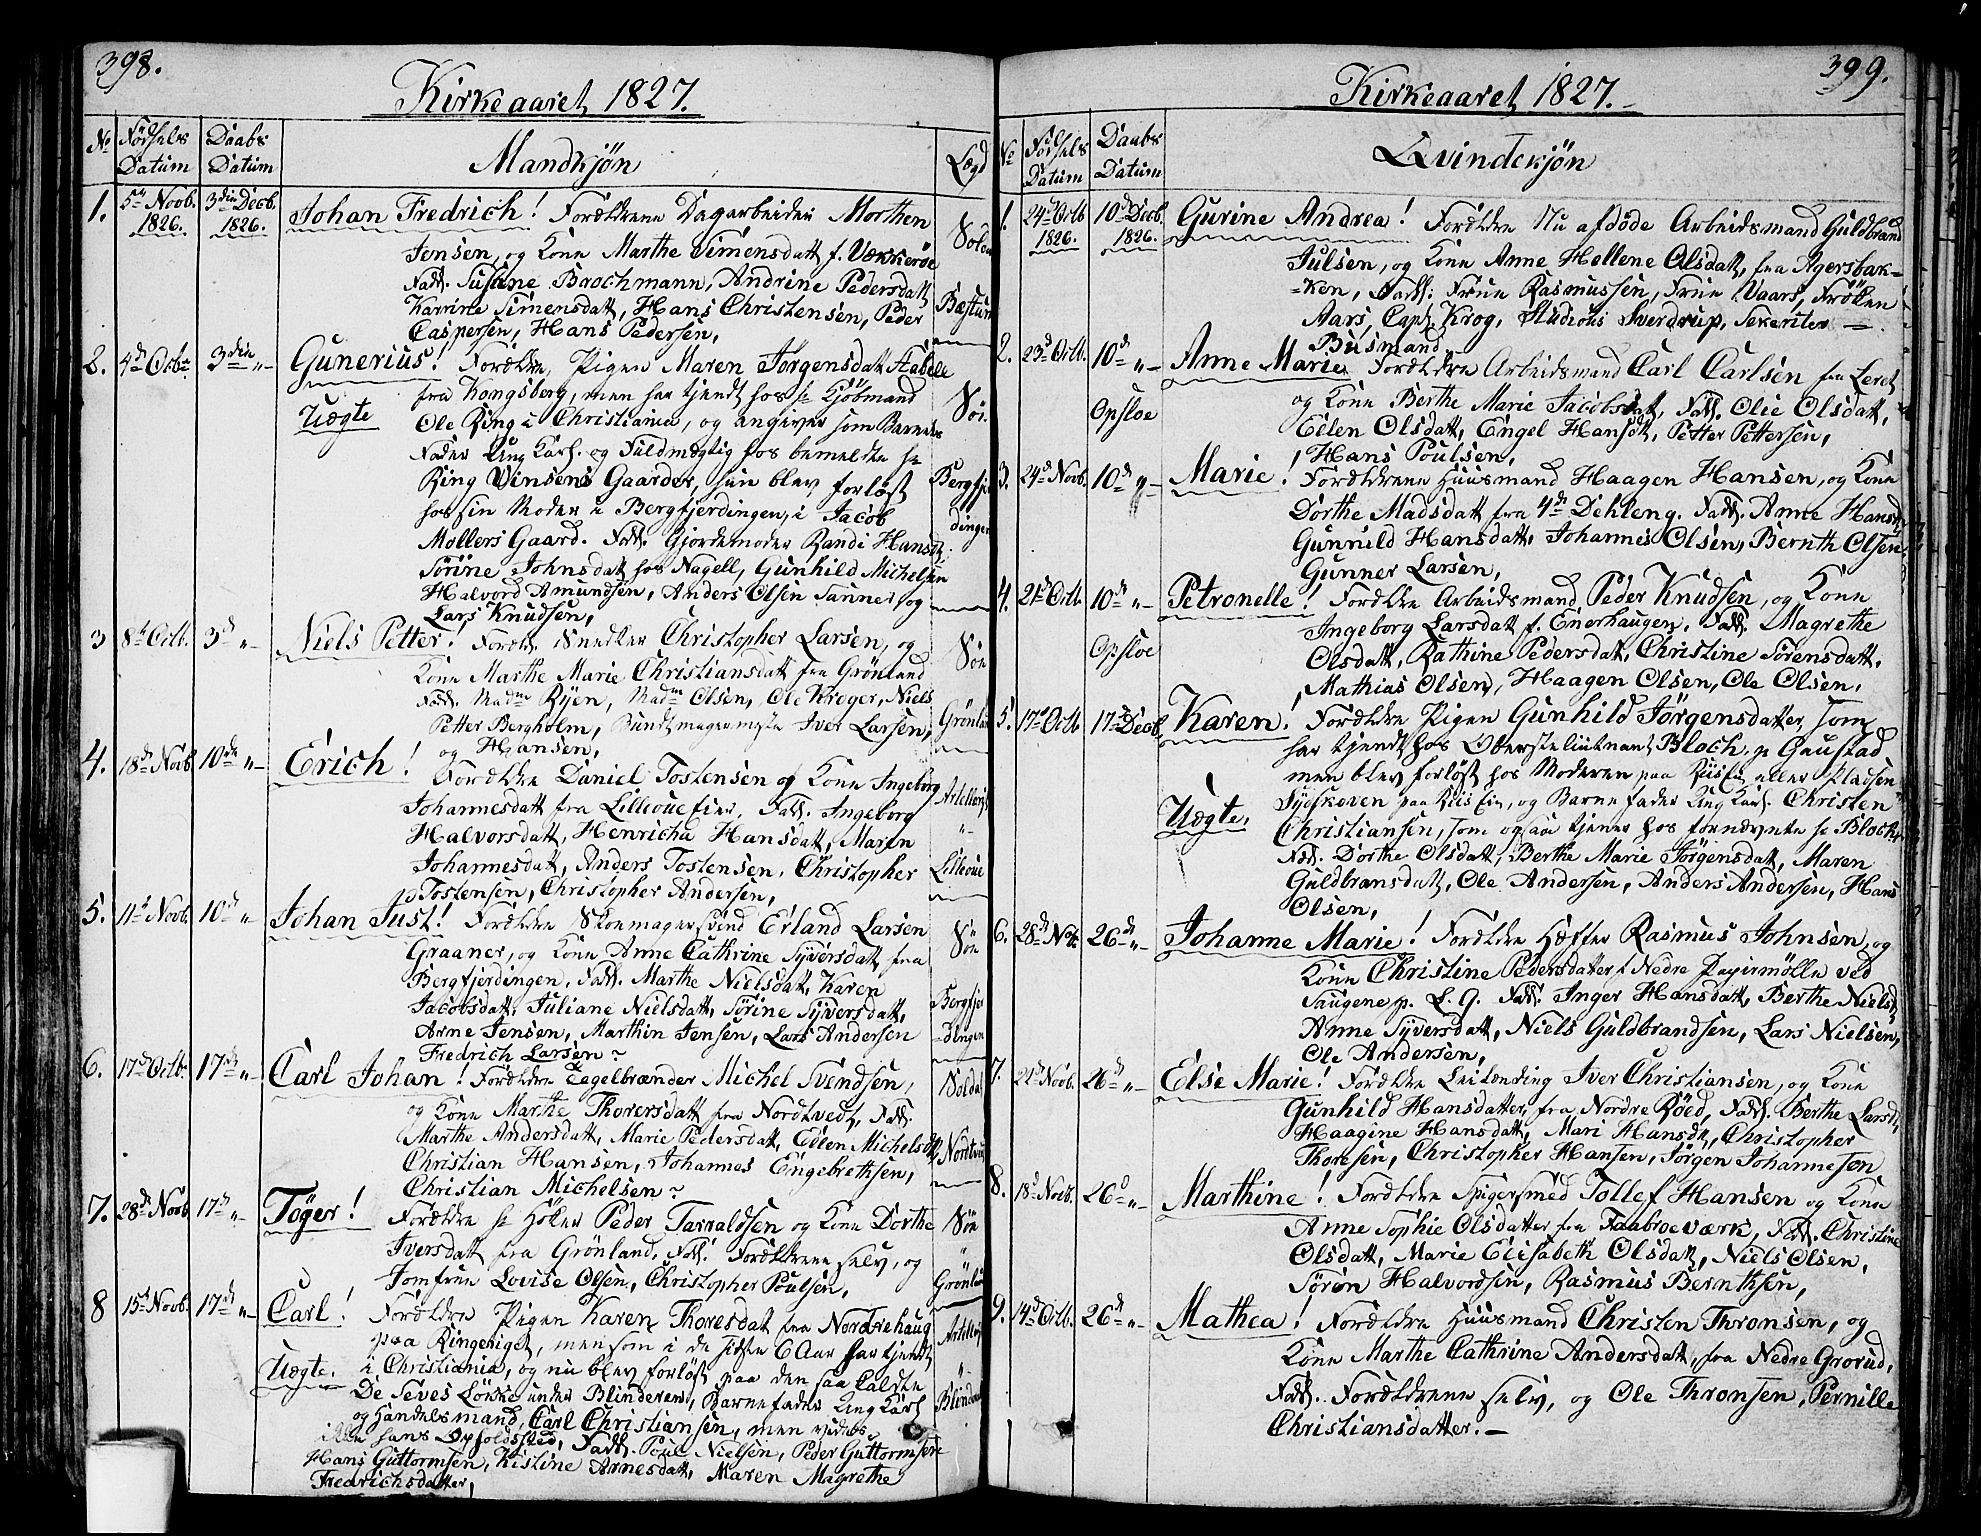 398.
Kirkeaaret 1827.
No Fødsels Datum Daabs Datum Mandkjøn Lægd
1. 5te Novb. 1826. 3die Decb. 1826. Johan Fredrich! Forældrene Dagarbeider Morthen
Jensen, og Kone Marthe Simensdatt f. Vækkerøe
Fadd. Susane Brochmann, Andrine Pedersdatt
Karrine Simensdatt, Hans Christensen, Peder
Caspersen, Hans Pedersen,
Bæstum
2. 4de Octbr. 3die "- Gunerius! Forældre, Pigen Maren Jørgensdatt
fra Kongsberg, men har tjendt hos Hr Kjöbmand
Uægte Ole Ring i Christiania, og angiver som Barnets
Fader Ung Karl. og Fuldmægtig hos bemeldte Hr
Ring Vinsens Gaarder, hun blev forløst
hos sin Moder i Bergfjerdingen, i Jacob
Møllers Gaard. Fadd. Gjordemoder Randi Hansdt.
Sørine Johnsdatt hos Nagell, Gunhild Michelsen
Halvord Amundsen, Anders Olsen Sanner og
Lars Knudsen,
Bergfjer
dingen
3 8de Octb. 3de "- Niels Petter! Forældr. Snedker Christopher Larsen, og
Kone Marthe Marie Christiansdatt fra Grönland
Fadd. Madm Ryen, Madm Olsen, Ole Kreger, Niels
Petter Bergholm, Bundtmagermester Iver Larsen,
og Hansen,
Grönland
4. 18de Novb 10de "- Erich! Forældre Daniel Tostensen og Kone Ingeborg
Johannesdatt fra Lilleoue Eier, Fadd. Ingeborg
Halvorsdatt, Henricha Hansdatt, Maren
Johannesdatt, Anders Tostensen, Christopher
Tostensen, Christopher Andersen,
Lilleoue
5. 11te Novb. 10de "- Johan Just! Forældre Skomagersvend Erland Larsen
Graaner, og Kone Anne Cathrine Syversdatt, fra
Bergfjerdingen, Fadd. Marthe Nielsdatt, Karen
Jacobsdatt, Juliane Nielsdatt, Sørine Syversdatt,
Arne Jensen, Marthin Jensen, Lars Andersen
Fredrich Larsen
Bergfjer
-dingen
6. 17de Octb. 17de "- Carl Johan! Forældre Tegelbrænder Michel Svendsen,
og Kone Marthe Thorersdatt fra Nordtvedt, Fadd.
Marthe Andersdatt, Marie Pedersdatt, Edlen Michelsdtt
Christian Hansen, Johannes Engebrethsen,
Christian Michelsen
Nordtvedt
7. 28de Novb 17de "- Töger! Forældre Hr Höker Peder Tarraldsen og Kone Dorthe
Iversdatt fra Grönland. Fad. Forældrene selv, og
Jomfrue Lovise Olsen, Christopher Poulsen,
Grönland
8 15de Novb. 17de "- Carl! Forældre Pigen Karen Thoresdat fra Nordrehaug
paa Ringeriget, men som i de sidste 6 Aar har tjendt
Uægte. i Christiania, og nu blev forløst paa den saa kaldte
De Seves Løkke under Blinderen, Barnefader Ung Karl
og Handelsmand Carl Christiansen, men vides
ikke hans Opholdssted, Fadd. Poul Nielsen, Peder Guttormsen
Hans Guttormsen, Kistine Arnesdatt, Maren Magrethe
Fredrichsdatter,
399.
Kirkeaaret 1827.
No Fødsels Datum Daabs Datum Qvindekjøn
1. 24de Octb 1826. 10de Decb. 1826. Gurine Andrea! Forældre Nu afdöde Arbeidsmand Guldbrand
Julsen, og Kone Anne Hellene Olsdatt, fra Agersbak-
-ken, Fadd: Frue Rasmussen, Frue Vaars, Frøken
Aars, Capt. Krog, Studiosis Sverdrup, Sekeriter
Busmand.
2. 23de Octb. 10de "- Anne Marie Forældre Arbeidsmand Carl Carlsen fra Leret
Opsloe og Kone Berthe Marie Jacobsdat, Fadd. Olie Olsdatt,
Edlen Olsdatt, Engel Hansdt, Petter Pettersen,
Hans Poulsen,
3. 24de Novb. 10de "- Marie! Forældrene Huusmand Haagen Hansen, og Kone
Dorthe Madsdatt fra 4de Dehleng. Fadd. Anne Hansdt
Gunnild Hansdatt, Johannes Olsen, Bernth Olsen,
Gunner Larsen,
4. 21de Octb. 10de "- Petronelle! Forældre Arbeidsmand Peder Knudsen, og Kone
Opsloe Ingeborg Larsdatt f. Enerhaugen, Fadd. Magrethe
Olsdatt, Rathine Pedersdat, Christine Sørensdatt,
Mathias Olsen, Haagen Olsen, Ole Olsen.
5. 17de Octb 17de Decb. Karen! Forældre Pigen Gunhild Jørgensdatter, som
har tjendt hos Oberstelieutnant Bloch p Gaustad
men blev forløst hos Moderen paa Riis Eie eller Pladsen
Sydskoven paa Riis Eie, og Barne fader Ung Karl Christen
Uægte, Christiansen, som ogsaa tjener hos fornævnte Hr Bloch,
Fad. Dorthe Olsdatt, Berthe Marie Jørgensdatt, Maren
Guldbransdatt, Ole Andersen, Anders Andersen, Hans
Olsen,
6. 28de 26de "- Johanne Marie! Forældre Hæfter Rasmus Johnsen, og
Kone Christine Pedersdatter f Nedre Papirmølle ved
Saugene p. L. G. Fadd. Inger Hansdatt, Berthe Nielsdt,
Anne Syversdatt, Niels Guldbrandsen, Lars Nielsen,
Ole Andersen,
7. 21de Novb. 26de "- Else Marie! Forældre Leilænding Iver Christiansen, og Kone
Gunhild Hansdatter, fra Nordre Røed, Fadd. Berthe Larsdt,
Haagine Hansdatt, Mari Hansdt, Christopher
Thoresen, Christopher Hansen, Jørgen Johannesen
8. 18de Novb. 26de "- Marthine! Forældre Spigersmed Tollef Hansen og Kone
Anne Sophie Olsdatter fra Faabroe værk, Fadd. Christine
Olsdatt, Marie Elisabeth Olsdatt, Niels Olsen,
Søren Halvordsen, Rasmus Bernthsen,
9. 14de Octb. 26de "- Mathea! Forældre Huusmand Christen Thronsen, og
Kone Marthe Cathrine Andersdatt, fra Nedre Grorud,
Fadd. Forældrene selv, og Ole Thronsen, Pernille
Christiansdatter.